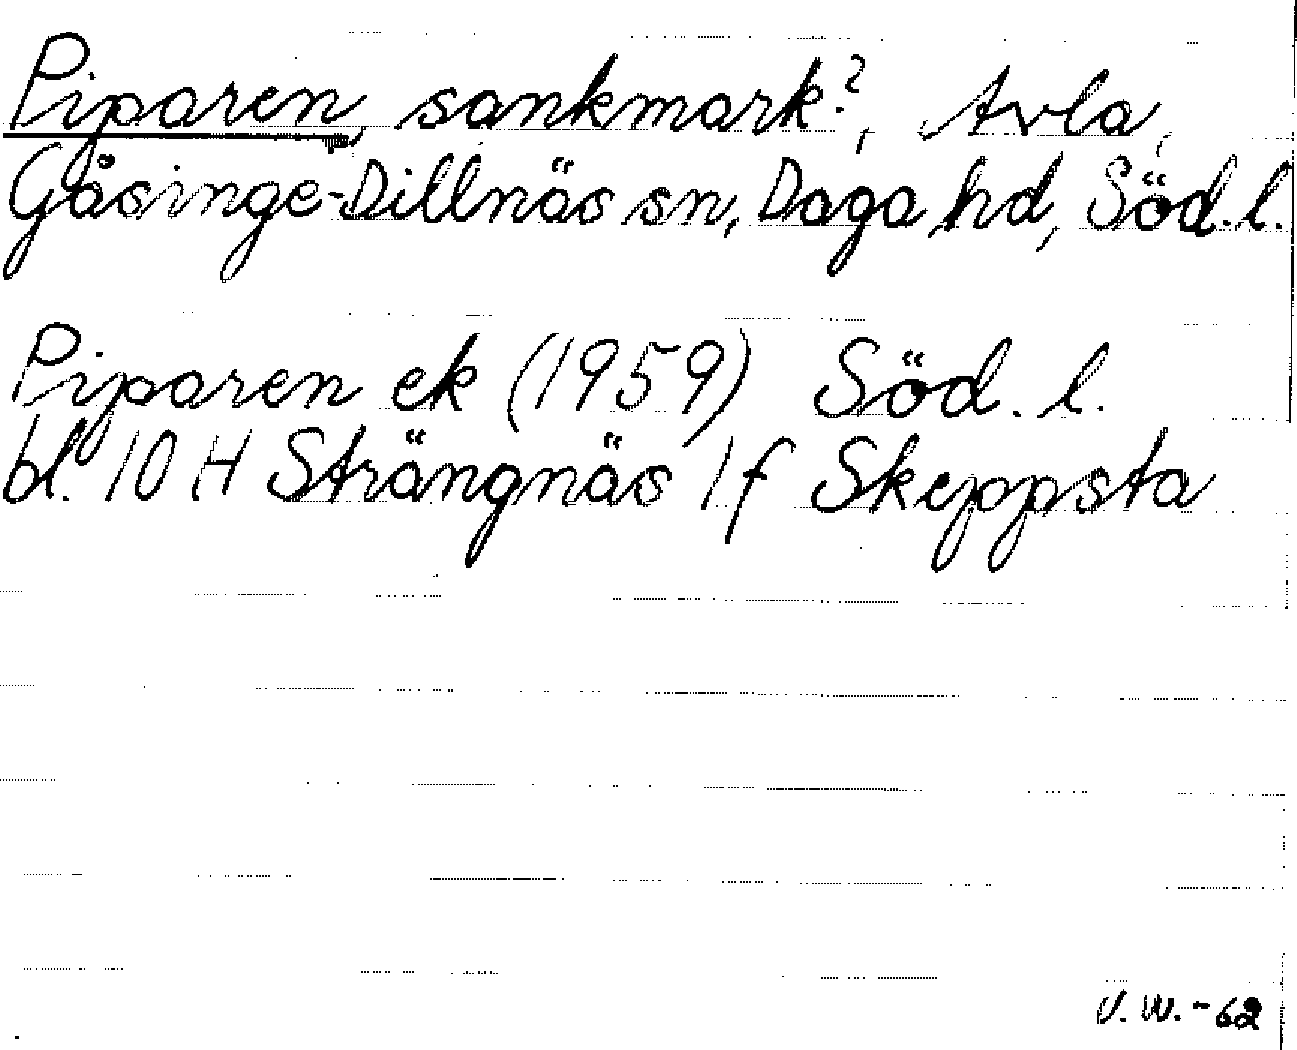 Piparen, sankmark?, Avla,
Gåsinge-Dillnäs sn, Daga hd, Söd. l.
Piparen ek (1959) Söd. l.
bl. 10 H Strängnäs 1 f Skeppsta
V. W. - 62